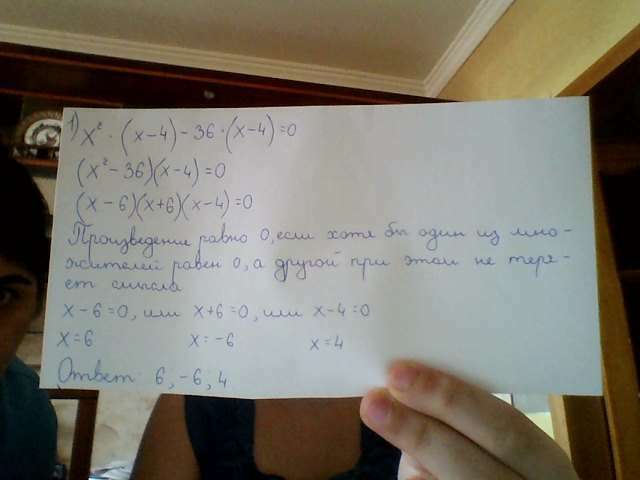 1) x² · (x-4) - 36 · (x-4) = 0
(x² - 36)(x-4) = 0
(x-6)(x+6)(x-4) = 0
Произведение равно 0, если хотя бы один из мно-
жителей равен 0, а другой при этом не теря-
ет смысла
x-6=0, или x+6=0, или x-4=0
x=6 x=-6 x=4
Ответ: 6, -6, 4